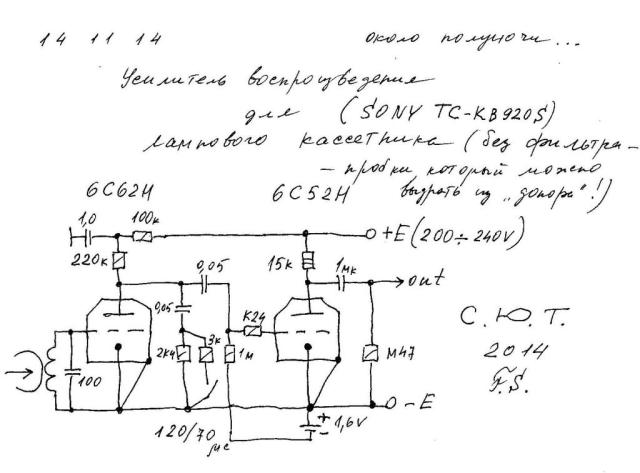 14 11 14 около полуночи...
Усилитель воспроизведения
для (SONY TC-KB920S)
лампового кассетника (без фильтра-
-пробки, который можно
выдрать из „донора"!)
6С62Н 6С52Н
1,0 100к +E (200÷240V)
220к 0,05 15к 1мк out
0,05 К24
100 2К4 3к 1м М47
С.Ю.Т.
2014
F.S.
-E
120/70 мс + - 1,6V